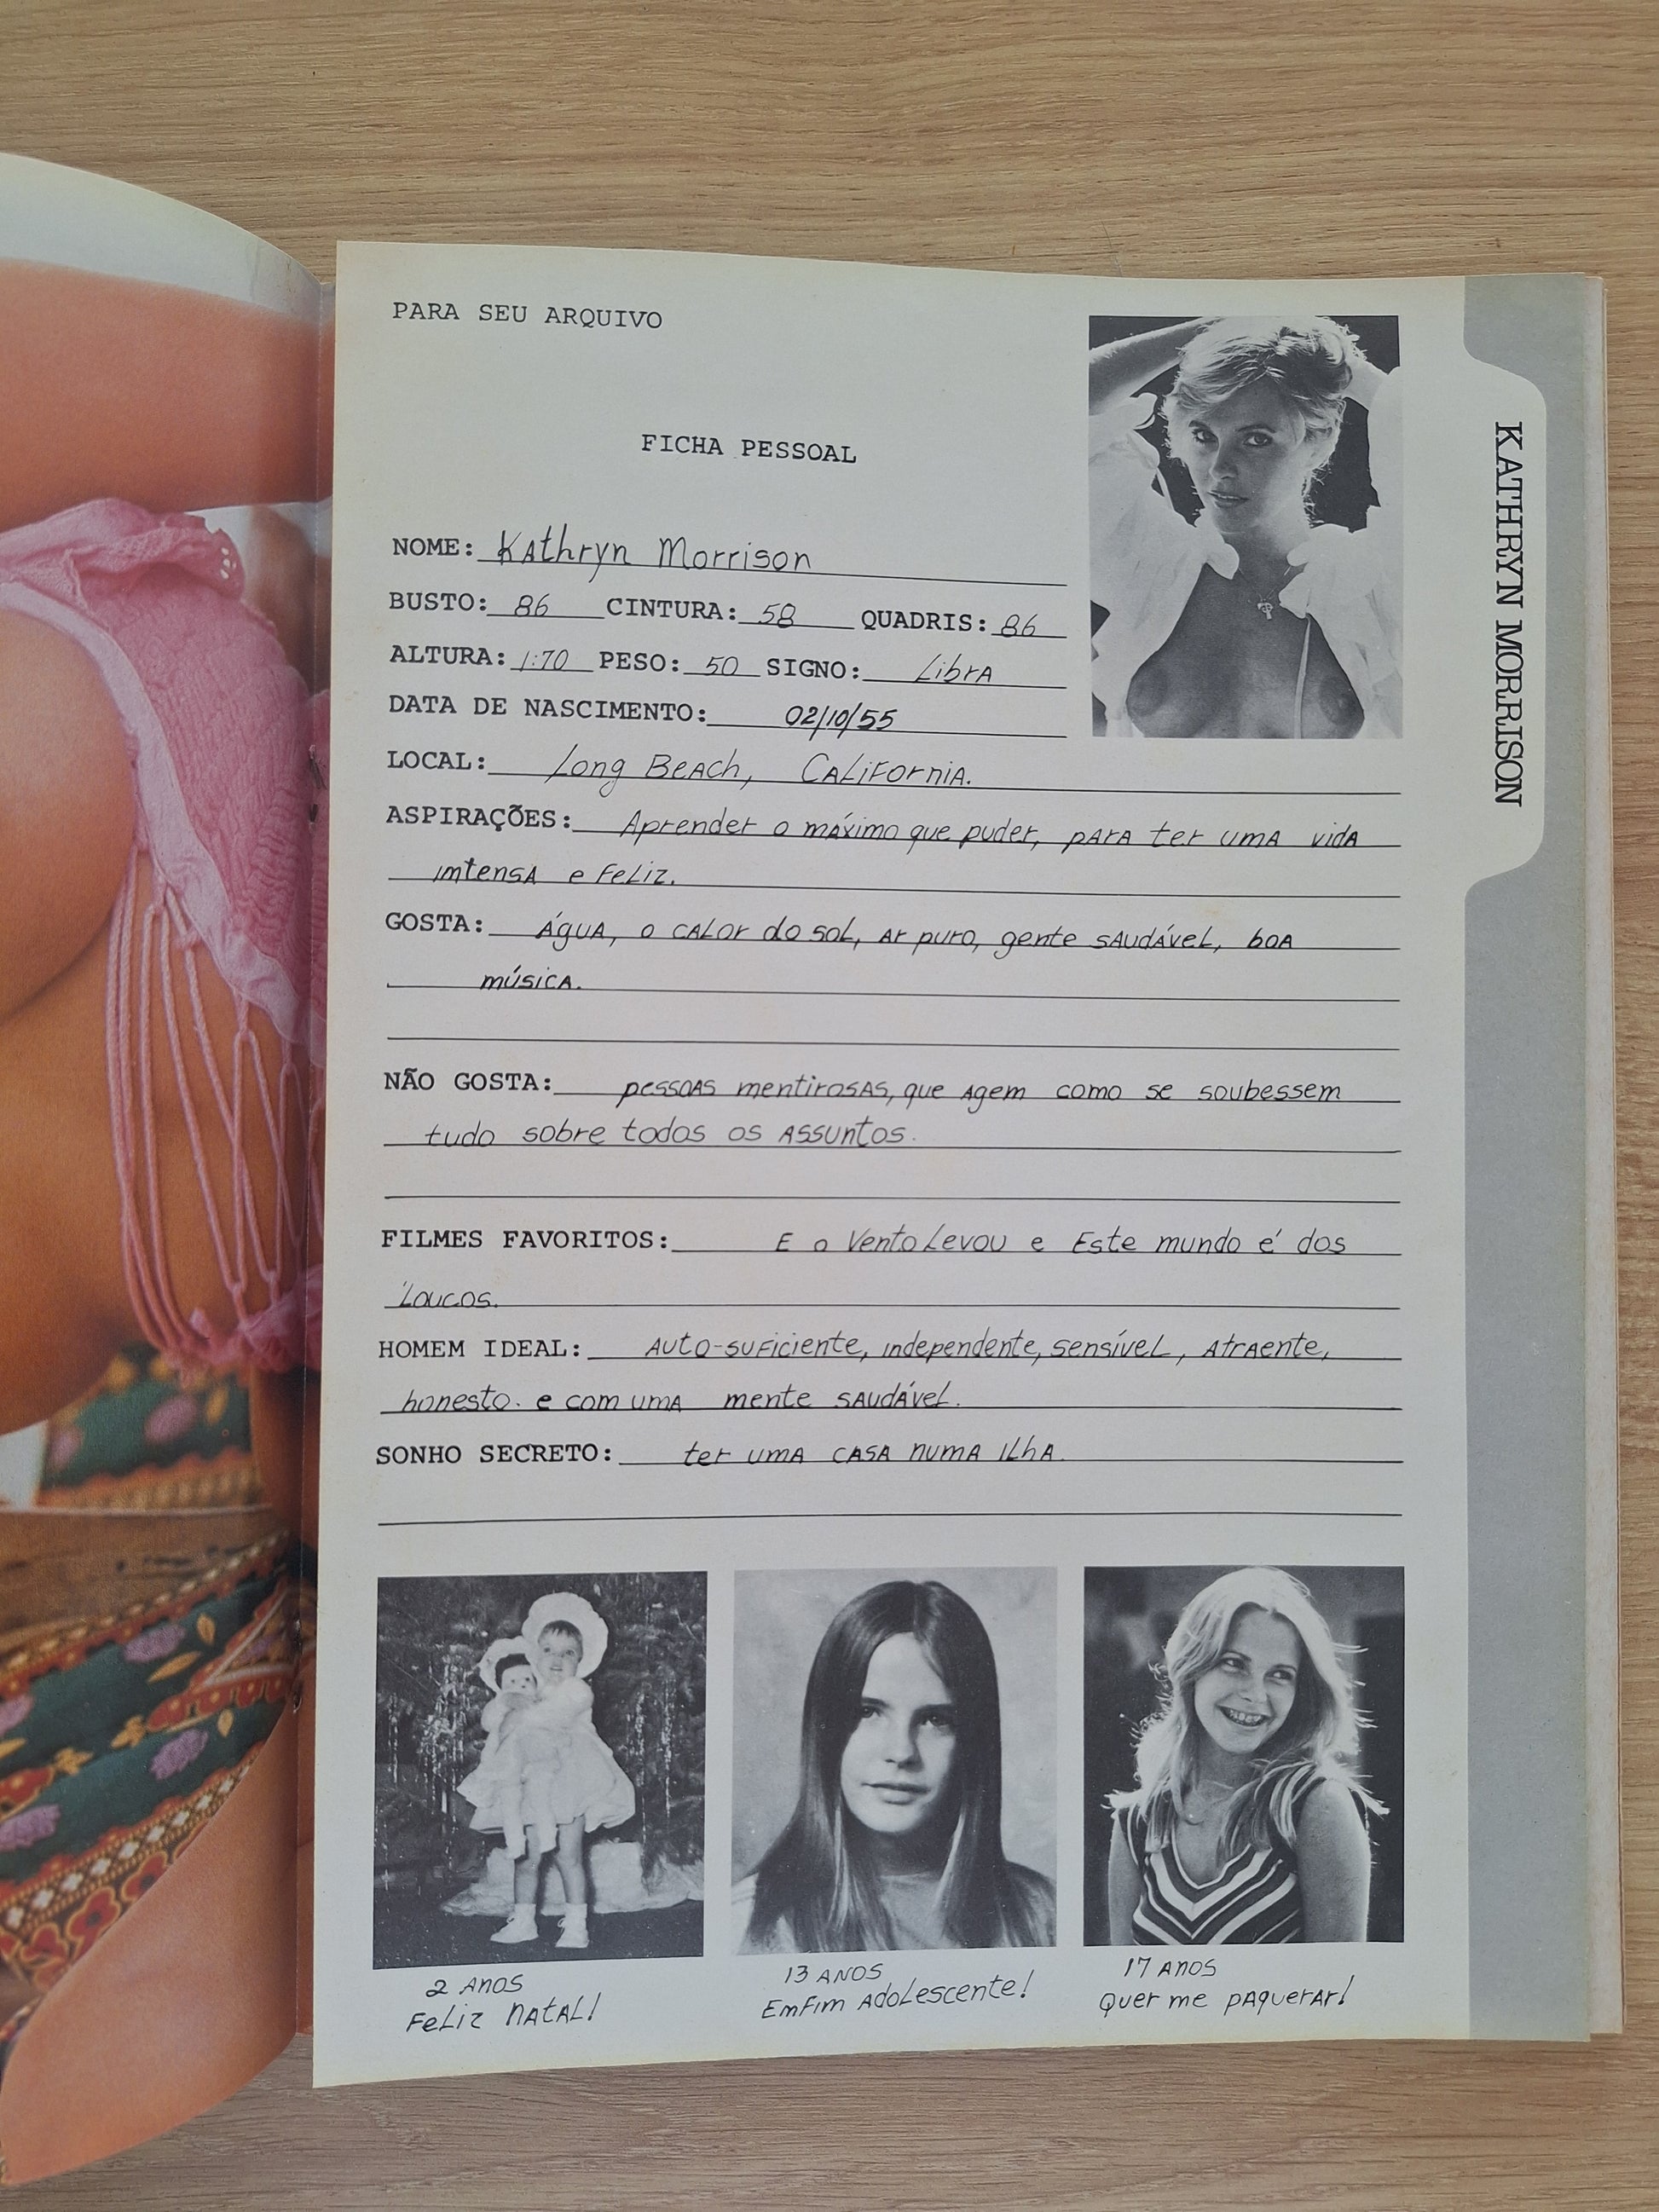 PARA SEU ARQUIVO
FICHA PESSOAL
KATHRYN MORRISON
NOME: Kathryn Morrison
BUSTO: 86 CINTURA: 58 QUADRIS: 86
ALTURA: 1:70 PESO: 50 SIGNO: Libra
DATA DE NASCIMENTO: 02/10/55
LOCAL: Long Beach, California.
ASPIRAÇÕES: Aprender o máximo que puder, para ter uma vida
intensa e feliz.
GOSTA: Água, o calor do sol, ar puro, gente saudável, boa
música.
NÃO GOSTA: pessoas mentirosas, que agem como se soubessem
tudo sobre todos os assuntos.
FILMES FAVORITOS: E o Vento Levou e Este mundo é dos
Loucos.
HOMEM IDEAL: Auto-suficiente, independente, sensível, atraente,
honesto. e com uma mente saudável.
SONHO SECRETO: ter uma casa numa ilha.
2 anos
Feliz Natal!
13 anos
Emfim adolescente!
17 anos
Quer me paquerar!